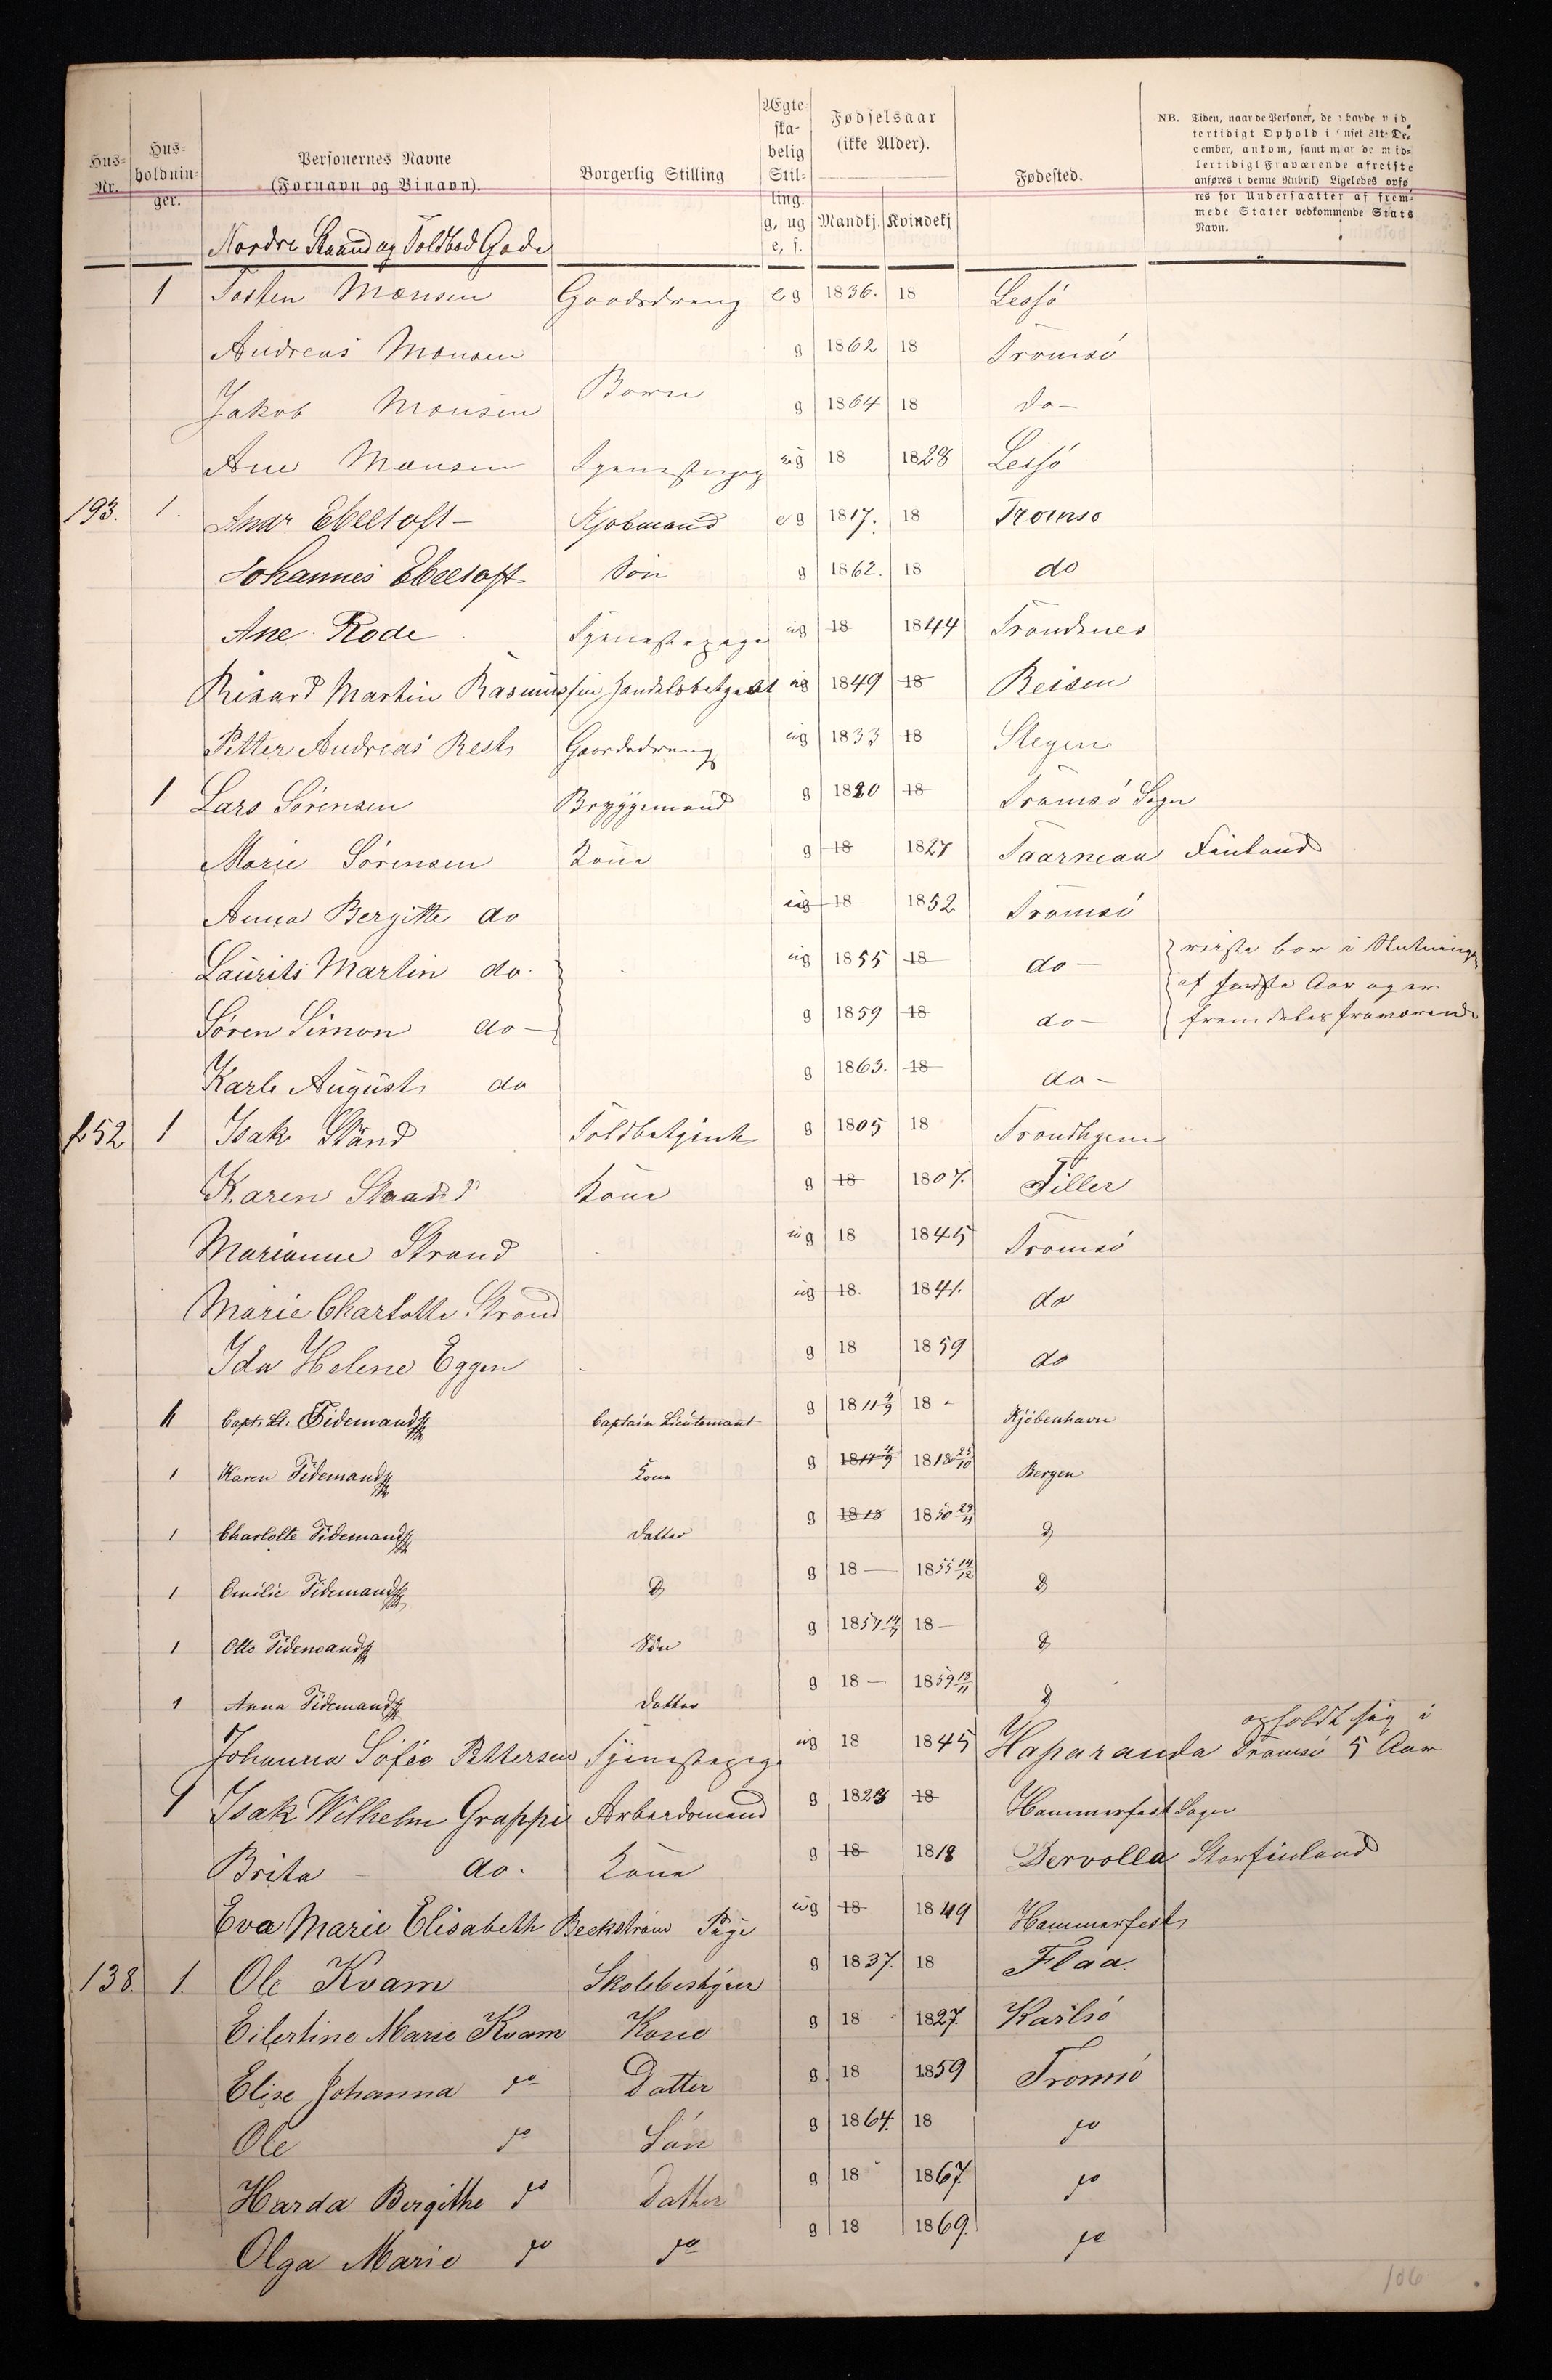 Hus-Nr. Husholdnin-ger. Personernes Navne (Fornavn og Binavn). Borgerlig Stilling Ægteskabelig Stilling. g, ug e, f. Fødselsaar (ikke Alder). Mandkj. Kvindekj Fødested. NB. Tiden, naar de Personer, de havde mid-
tertidigt Ophold i Huset 31te De-
cember, ankom, samt naar de mid-
lertidigt Fraværende afreiste
anføres i denne Rubrik) Ligeledes opfø
res for Undersaatter af frem-
mede Stater vedkommende Stats
Navn.
Nordre Strand og Toldbod Gade
1 Tosten Monsen Gaardsdreng e g 1836. 18 Lessö
Andreas Monsen g 1862 18 Tromsö
Jakob Monsen Børn g 1864 18 do-
Ane Monsen ug 18 1828 Lessö
193. 1. Andr Ebeltoft- Kjøbmand e g 1817. 18 Tromsø
Johannes Ebeltoft Søn g 1862. 18 do
Ane Rode Tjenestepige ug 18 1844 Trondenes
Rikard Martin Rasmussen Handelsbetjent ug 1849 18 Reisen
Petter Andreas Resh Gaardsdreng ug 1833 18 Stegen
1 Lars Sörensen Bryggemand g 1820 18 Tromsö Sogn
Marie Sörensen Kone g 18 1827 Taarneaa Finland
Anna Bergitte do ug 18 1852 Tromsö
Laurits Martin do. ug 1855 18 do- reiste bor i Slutningen
af sidste Aar og er
Sören Simon do- g 1859 18 do- fremdeles fraværende
Karl August do g 1863. 18 do-
52 1 Isak Strand Toldbetjent g 1805 18 Trondhjem
Karen Strand Kone g 18 1807. Tiller
Marianne Strand ug 18 1845 Tromsö
Marie Charlotte Strand ug 18. 1841. do
Ida Helene Eggen g 18 1859 do
1 Capt. Lt. Tidemand Captain Lieutenant g 1811 18 Kjöbenhavn
1 Karen Tidemand Kone g 1811 1818 25/10 Bergen
1 Charlotte Tidemand Datter g 1818 1850 do
1 Emilie Tidemand do g 18- 1855 14/12 do
1 Otto Tidemand Sön g 1857 18- do
1 Anna Tidemand Datter g 18- 1859 18/11 do
Johanna Sofie Pettersen Tjenestepige ug 18 1845 Haparanda opholdt sig i
Tromsö 5 Aar
1 Isak Wilhelm Grappe Arbeidsmand g 1828 18 Hammerfest Sogn
Brita - do. Kone g 18 1818 Dervolla Storfinland
Eva Marie Elisabeth Beckström Pige ug 18 1849 Hammerfest
138. 1. Ole Kvam Skolebestyrer g 1837. 18 Flaa.
Eilertine Marie Kvam Kone g 18 1827. Karlsö
Elise Johanna do Datter g 18 1859 Tromsö
Ole do Sön g 1864. 18 do
Harda Bergithe do Datter g 18 1867. do
Olga Marie do do g 18 1869. do
106